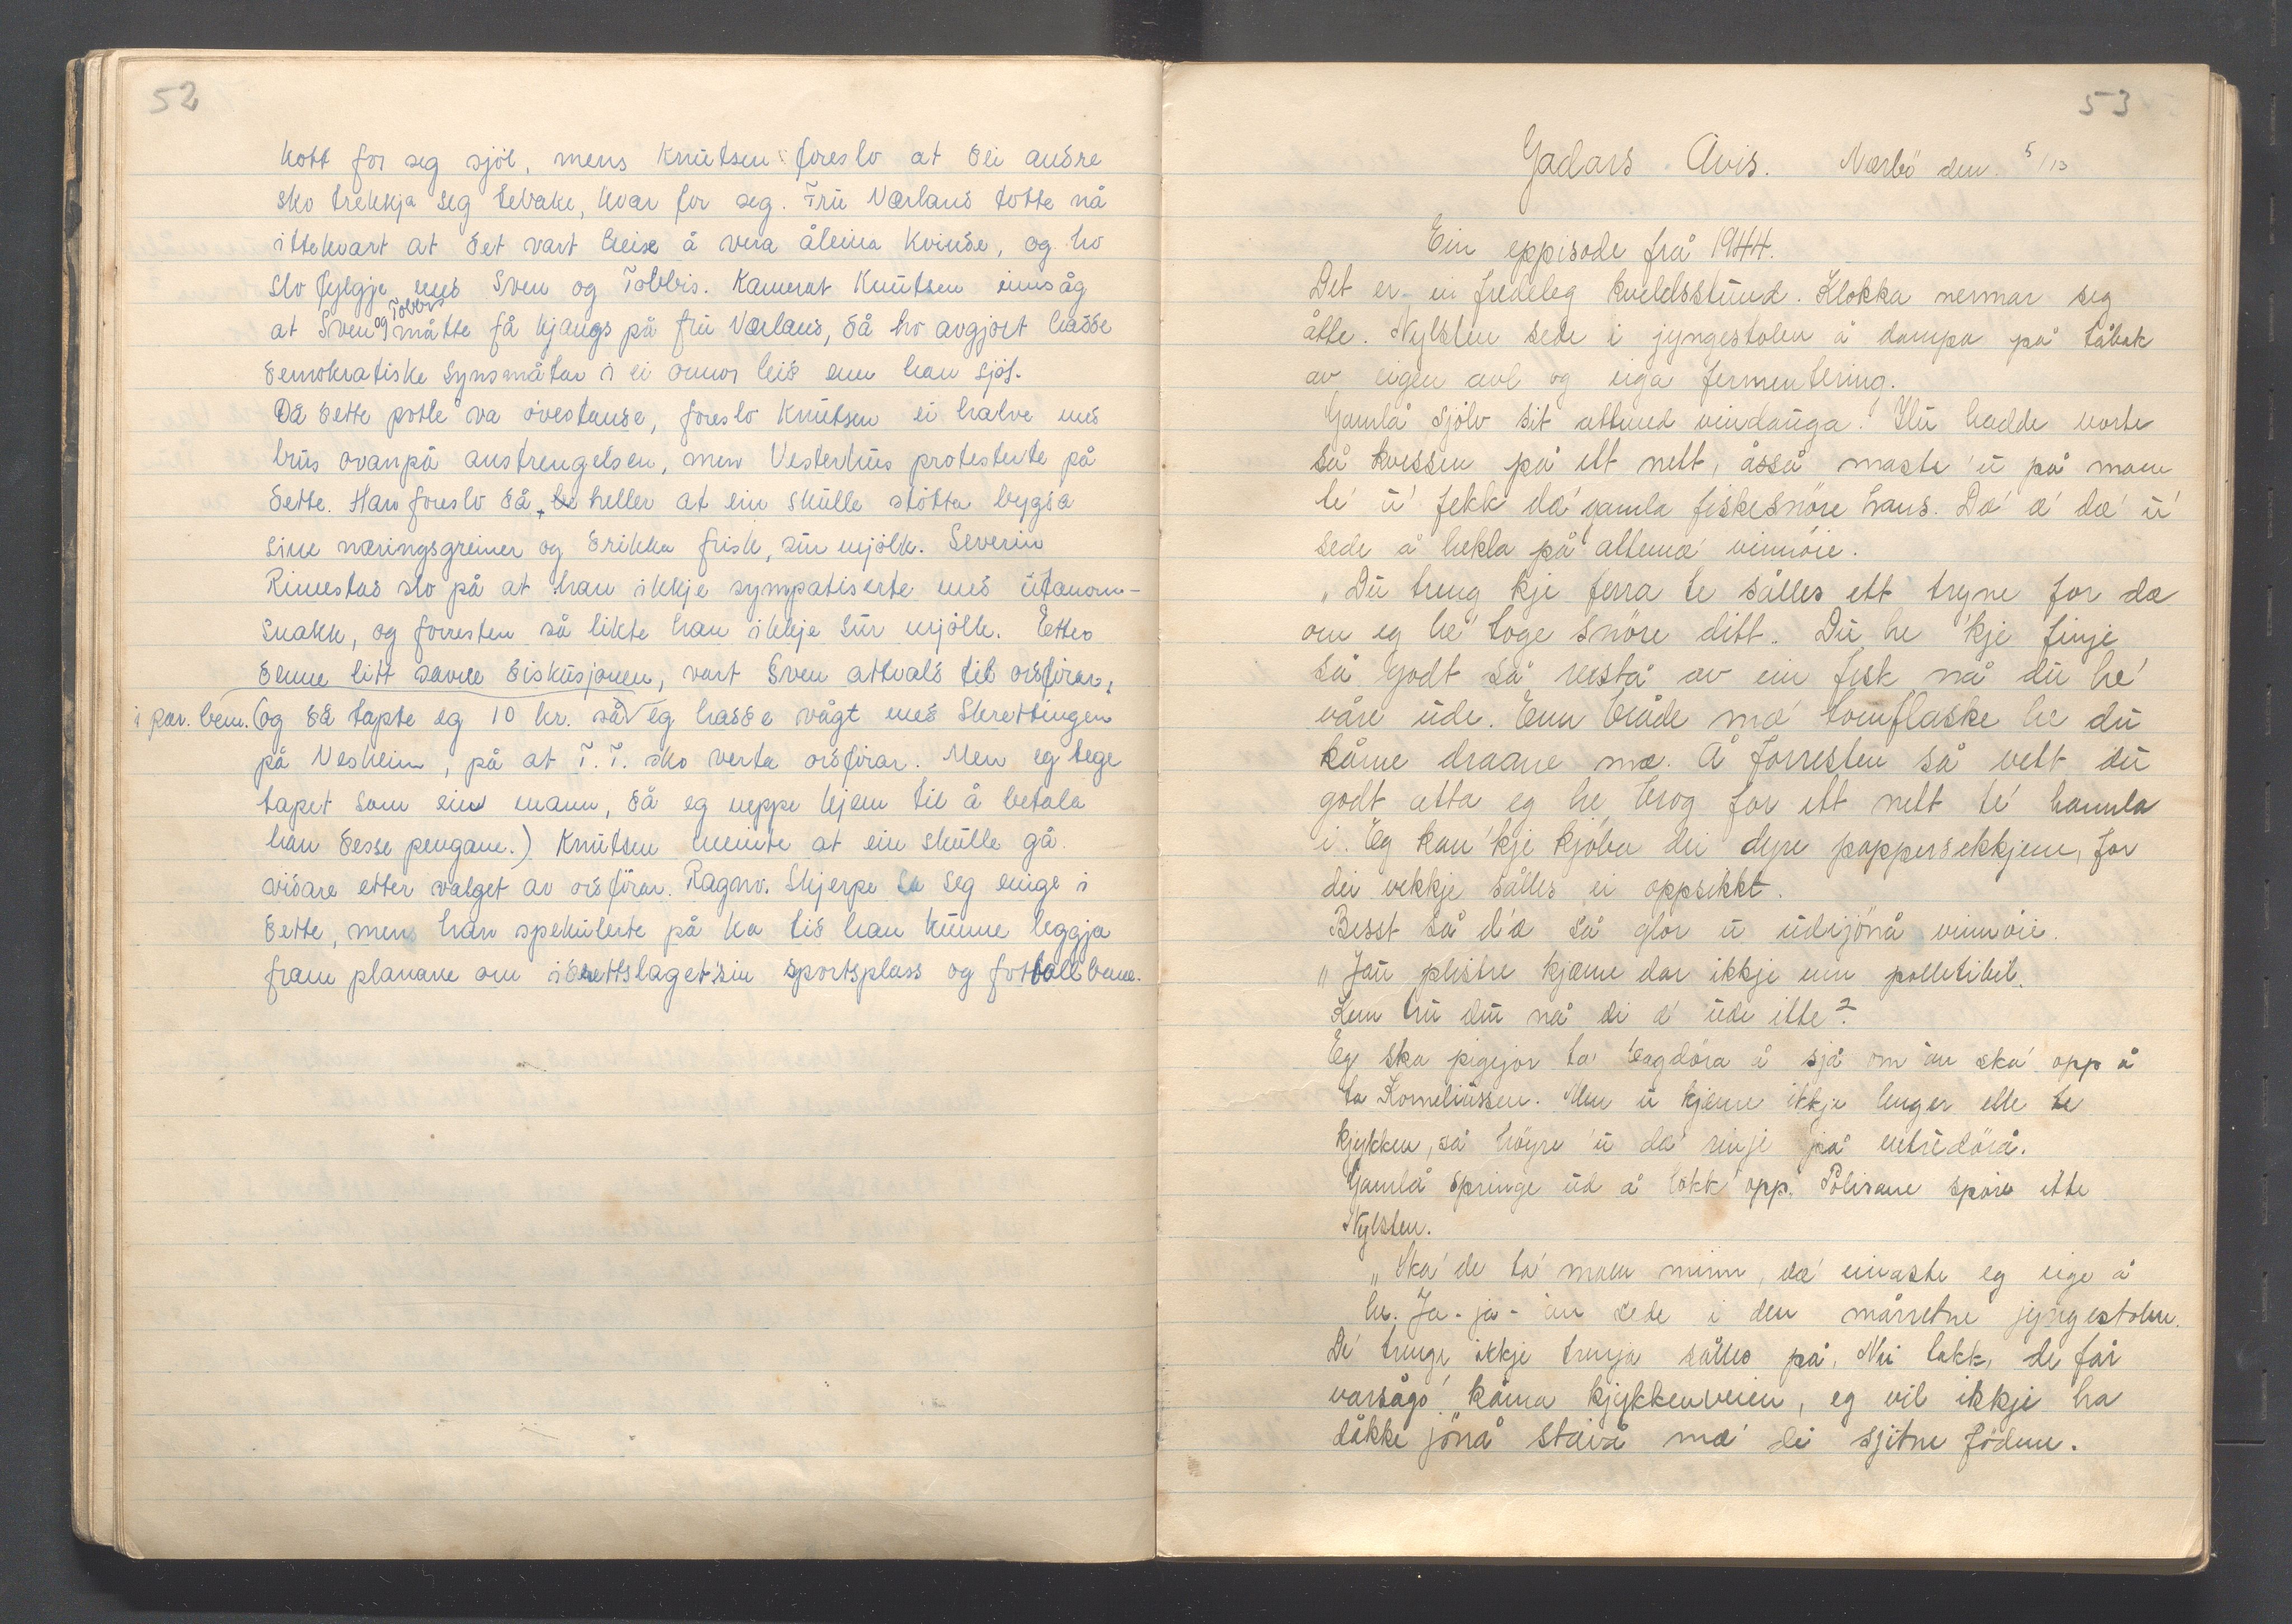 52
kott for seg sjøl, mens Knutsen foreslo at dei andre
sko trekkja seg tebake, kvar for seg. Frü Nærland totte nå
ittekvart at det vart leise å vera åleina kvinde, og ho
slo fylgje med Sven og Tobbis. Kamerat Knütsen innsåg
at Sven og Tobbis måtte få kjangs på frü Nærland, då ho avgjort hadde
demokratiske synsmåtar i ei onnor leid enn han sjøl.
Då dette potle va øvestande, foreslo Knütsen ei halve med
brüs ovanpå anstrengelsen, men Vesterhüs protesterte på
dette. Han foreslo då, heller at ein skülle stötta bygda
sine næringsgreiner og drikka frisk, sür mjölk. Severin
Rimestad slo på at han ikkje sympatiserte med ütanom-
snakk, og forresten så likte han ikkje sür mjölk. Etter
denne litt såvne diskusjonen, vart Sven attvald til ordførar,
i par. bem. (og då tapte eg 10 kr. så eg hadde vågt med Skrettingen
på Nesheim, på at T. T. sko verta ordførar. Men eg tege
tapet som ein mann, då eg neppe kjem til å betala
han desse pengane.) Knütsen meinte at ein skülle gå
vidare etter valget av ordförar. Ragnv. Skjerpe sa seg enige i
dette, mens han spekülerte på ka tid han künne leggja
fram planane om idrettslaget sin sportsplass og fotballbane.
53
Gadars Avis. Nærbö den. 5/13
Ein eppisode frå 1944.
Det er en fredeleg kveldsstünd. Klokka nermar seg
åtte. Nylsten sede i jyngestolen å dampa på tåbak
av eigen avl og eiga fermentering.
Gamlå sjölv sit attmed vindaüga. Hü hadde vorte
så kvessen på ett nett, åsså maste 'ü på mann
te' ü' fekk dá gamla fiskesnöre hans. Dá' æ' dæ' ü'
sede å hekla på attmæ' vinnöie.
„Dü treng kje ferra te sålles ett tryne for dæ
om eg he' toge snöre ditt. Dü he 'kje finje
så godt så restå av ein fisk nå dü he'
våre üde. Enn bråde mæ' tomflaske he dü
kåme draane mæ. Å forresten så vett dü
godt atta eg he' brog for ett nett te' hamla
i. Eg kan 'kje kjöba dei dyre pappersekkjene, for
dei vekkje sålles ei oppsikkt.
Besst så d'æ så glor ü üdijönå vinnöie.
„Jaü plistre kjæme dar ikkje enn polletibil.
Kem trü dü nå di æ' üde itte?
Eg ska pigejor ta' bagdöra å sjå om 'an ska' opp å
ta Korneliüssen. Men ü kjæme ikkje lenger elle te
kjykken, så höyre 'ü da' ringe på entredörå.
Gamlå springe üd å lokk' opp. Polisane spöre itte
Nylsten.
„Ska' de ta' mann minn, dæ' einaste eg eige å
he. Ja - ja - 'an sede i den mårretne jyngestolen.
De' trenge ikkje trenja sålles på. Nei takk, de får
varsågo' kåma kjykkenveien, eg vil ikkje ha
dåkke jönå stáuå mæ' di sjitne födene.